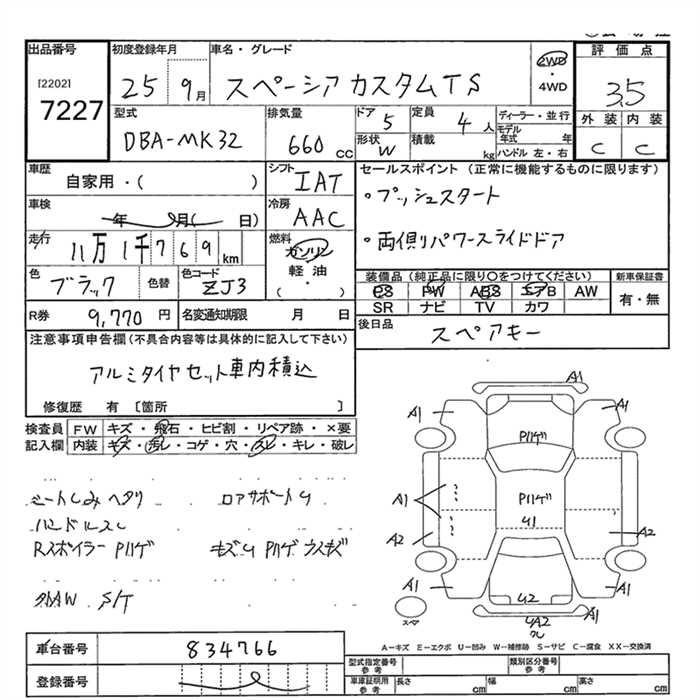 出品番号
[2202]
7227
初度登録年月
25 9月
車名・グレード
スペーシア カスタムTS
2WD
・
4WD
評価点
3.5
外装 内装
C C
型式
DBA-MK32
排気量
660 cc
ドア
5
定員
4人
形状
W
積載
kg
ディーラー・並行
モデル年式 年
ハンドル 左・右
車歴
自家用・( )
シフト
IAT
車検
年 月( 日)
冷房
AAC
走行
11万1千769km
燃料
ガソリン
・
軽油
( )
色
ブラック
色替
色コード
ZJ3
R券 9,770円
名変通知期限 月 日
セールスポイント(正常に機能するものに限ります)
・プッシュスタート
・両側パワースライドドア
装備品(純正品に限り〇をつけてください)
PS PW ABS エアB AW
SR ナビ TV カワ
新車保証書
有・無
後日品
スペアキー
注意事項申告欄(不具合内容等は具体的に記入して下さい)
アルミタイヤセット車内積込
修復歴 有 [箇所 ]
検査員
記入欄
FW キズ・飛石・ヒビ割・リペア跡・×要
内装 キズ・汚レ・コゲ・穴・スレ・キレ・破レ
シートしみ ヘタリ
ハンドルスレ
Rスポイラー Pハゲ
ロアサポートU
キズU Pハゲ ウスキズ
S/T
A1
A1
A1
Pハゲ
A1
Pハゲ
U1
A2
A2
A1
U2
A1
UA2
スペア
A-キズ E-エクボ U-凹み W-補修跡 S-サビ C-腐食 XX-交換済
車台番号
834766
登録番号
型式指定番号
参考
類別区分番号
参考
車庫証明用
参考
長さ cm
幅 cm
高さ cm